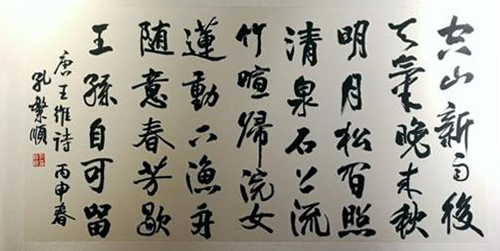 空山新雨後
天氣晚来秋
明月松间照
清泉石上流
竹喧歸浣女
蓮動下漁舟
随意春芳歇
王孫自可留
唐王維詩 丙申春
孔繁順